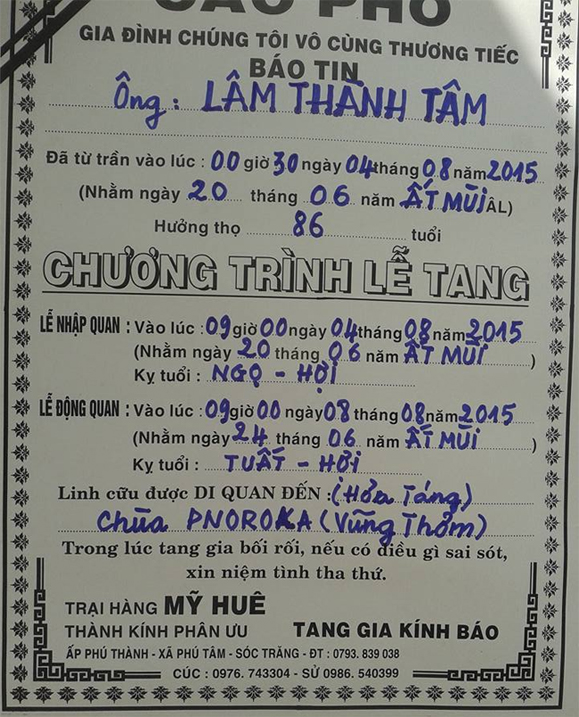 CÁO PHÓ
GIA ĐÌNH CHÚNG TÔI VÔ CÙNG THƯƠNG TIẾC
BÁO TIN
Ông: LÂM THÀNH TÂM
Đã từ trần vào lúc : 00 giờ 30 ngày 04 tháng 08 năm 2015
(Nhằm ngày 20 tháng 06 năm ẤT MÙI ÂL)
Hưởng thọ 86 tuổi
CHƯƠNG TRÌNH LỄ TANG
LỄ NHẬP QUAN : Vào lúc : 09 giờ 00 ngày 04 tháng 08 năm 2015
(Nhằm ngày 20 tháng 06 năm ẤT MÙI )
Kỵ tuổi : NGỌ - HỢI
LỄ ĐỘNG QUAN : Vào lúc : 09 giờ 00 ngày 08 tháng 08 năm 2015
(Nhằm ngày 24 tháng 06 năm ẤT MÙI )
Kỵ tuổi : TUẤT - HỢI
Linh cữu được DI QUAN ĐẾN : (Hỏa Táng)
Chùa PNOROKA (Vũng Thơm)
Trong lúc tang gia bối rối, nếu có điều gì sai sót,
xin niệm tình tha thứ.
TRẠI HÀNG MỸ HUÊ
THÀNH KÍNH PHÂN ƯU TANG GIA KÍNH BÁO
ẤP PHÚ THÀNH - XÃ PHÚ TÂM - SÓC TRĂNG - ĐT : 0793. 839 038
CÚC : 0976. 743304 - SỬ 0986. 540399